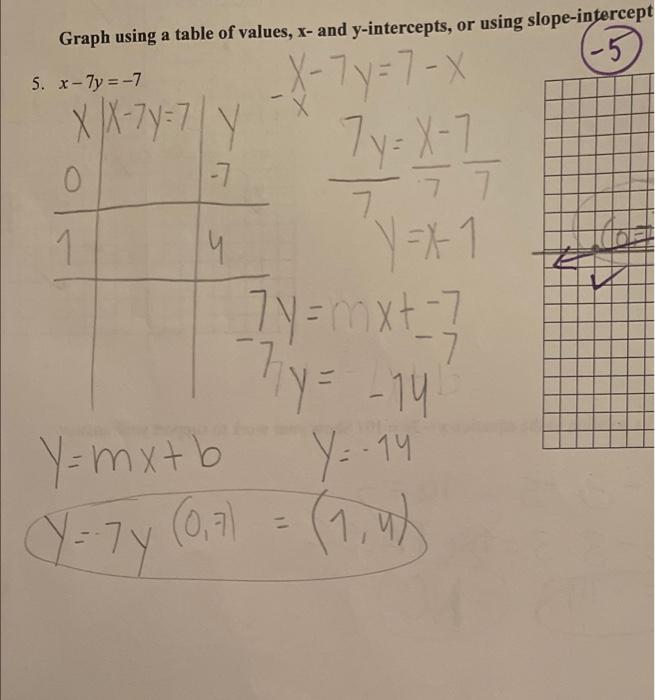 Graph using a table of values, x- and y-intercepts, or using slope-intercept
-5
5. x – 7y = –7
X-7y=7-x
-x
X | X-7y=7 | y
0 -7
1 4
7y = X-7
7 7 7
y=x-1
7y=mx+-7
-7 -7
7y= -14
y=mx+b
y=-14
y=-7y (0,7) = (1,4)